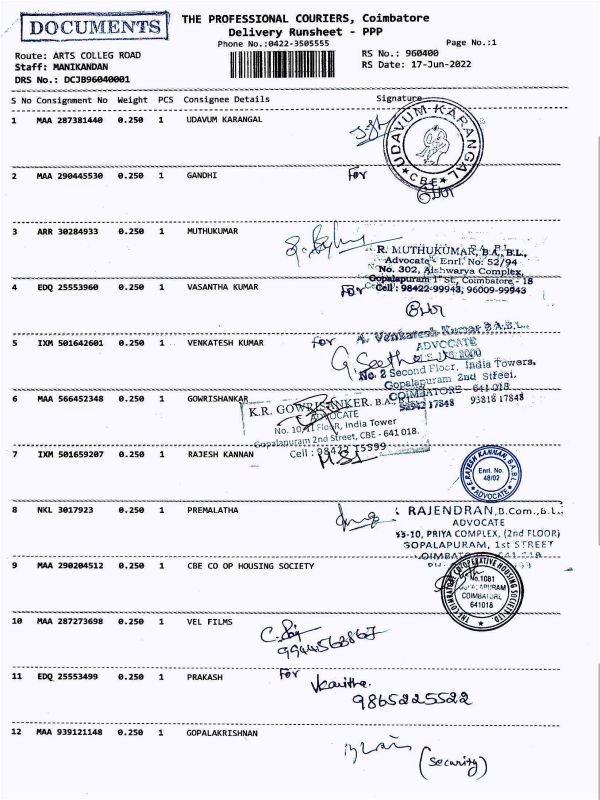 DOCUMENTS
THE PROFESSIONAL COURIERS, Coimbatore
Delivery Runsheet - PPP
Phone No.:0422-3505555
Page No.:1
Route: ARTS COLLEG ROAD
RS No.: 960400
Staff: MANIKANDAN
RS Date: 17-Jun-2022
DRS No.: DCJB96040001
S No Consignment No Weight PCS Consignee Details Signature
1 MAA 287381440 0.250 1 UDAVUM KARANGAL
UDAVUM KARANGAL
CBE
2 MAA 290445530 0.250 1 GANDHI
For
3 ARR 30284933 0.250 1 MUTHUKUMAR
R. MUTHUKUMAR, B.A., B.L.,
Advocate - Enrl. No: 52/94
No. 302, Aishwarya Complex,
Gopalapuram 1st St., Coimbatore - 18
Cell : 98422-99943, 96009-99943
4 EDQ 25553960 0.250 1 VASANTHA KUMAR
For
5 IXM 501642601 0.250 1 VENKATESH KUMAR
For
A. Venkatesh Kumar B.A.B.L.
ADVOCATE
No. 2 Second Floor, India Towers.
Gopalapuram 2nd Street.
COIMBATORE - 641 018
93818 17848
6 MAA 566452348 0.250 1 GOWRISHANKAR
K.R. GOWRISHANKER. B.A.
ADVOCATE
India Tower
Gopalapuram 2nd Street, CBE - 641 018.
7 IXM 501659207 0.250 1 RAJESH KANNAN
RAJESH KANNAN, B.A.B.L.
Enrl. No.
48/02
ADVOCATE
8 NKL 3017923 0.250 1 PREMALATHA
RAJENDRAN, B.Com., B.L.,
ADVOCATE
33-10, PRIYA COMPLEX, (2nd FLOOR)
GOPALAPURAM, 1st STREET
9 MAA 290204512 0.250 1 CBE CO OP HOUSING SOCIETY
THE COIMBATORE CO-OPERATIVE HOUSING SOCIETY LTD.
No.1081
COIMBATORE
641018
10 MAA 287273698 0.250 1 VEL FILMS
9944563867
11 EDQ 25553499 0.250 1 PRAKASH
For
Kavitha.
9865225522
12 MAA 939121148 0.250 1 GOPALAKRISHNAN
(Security)